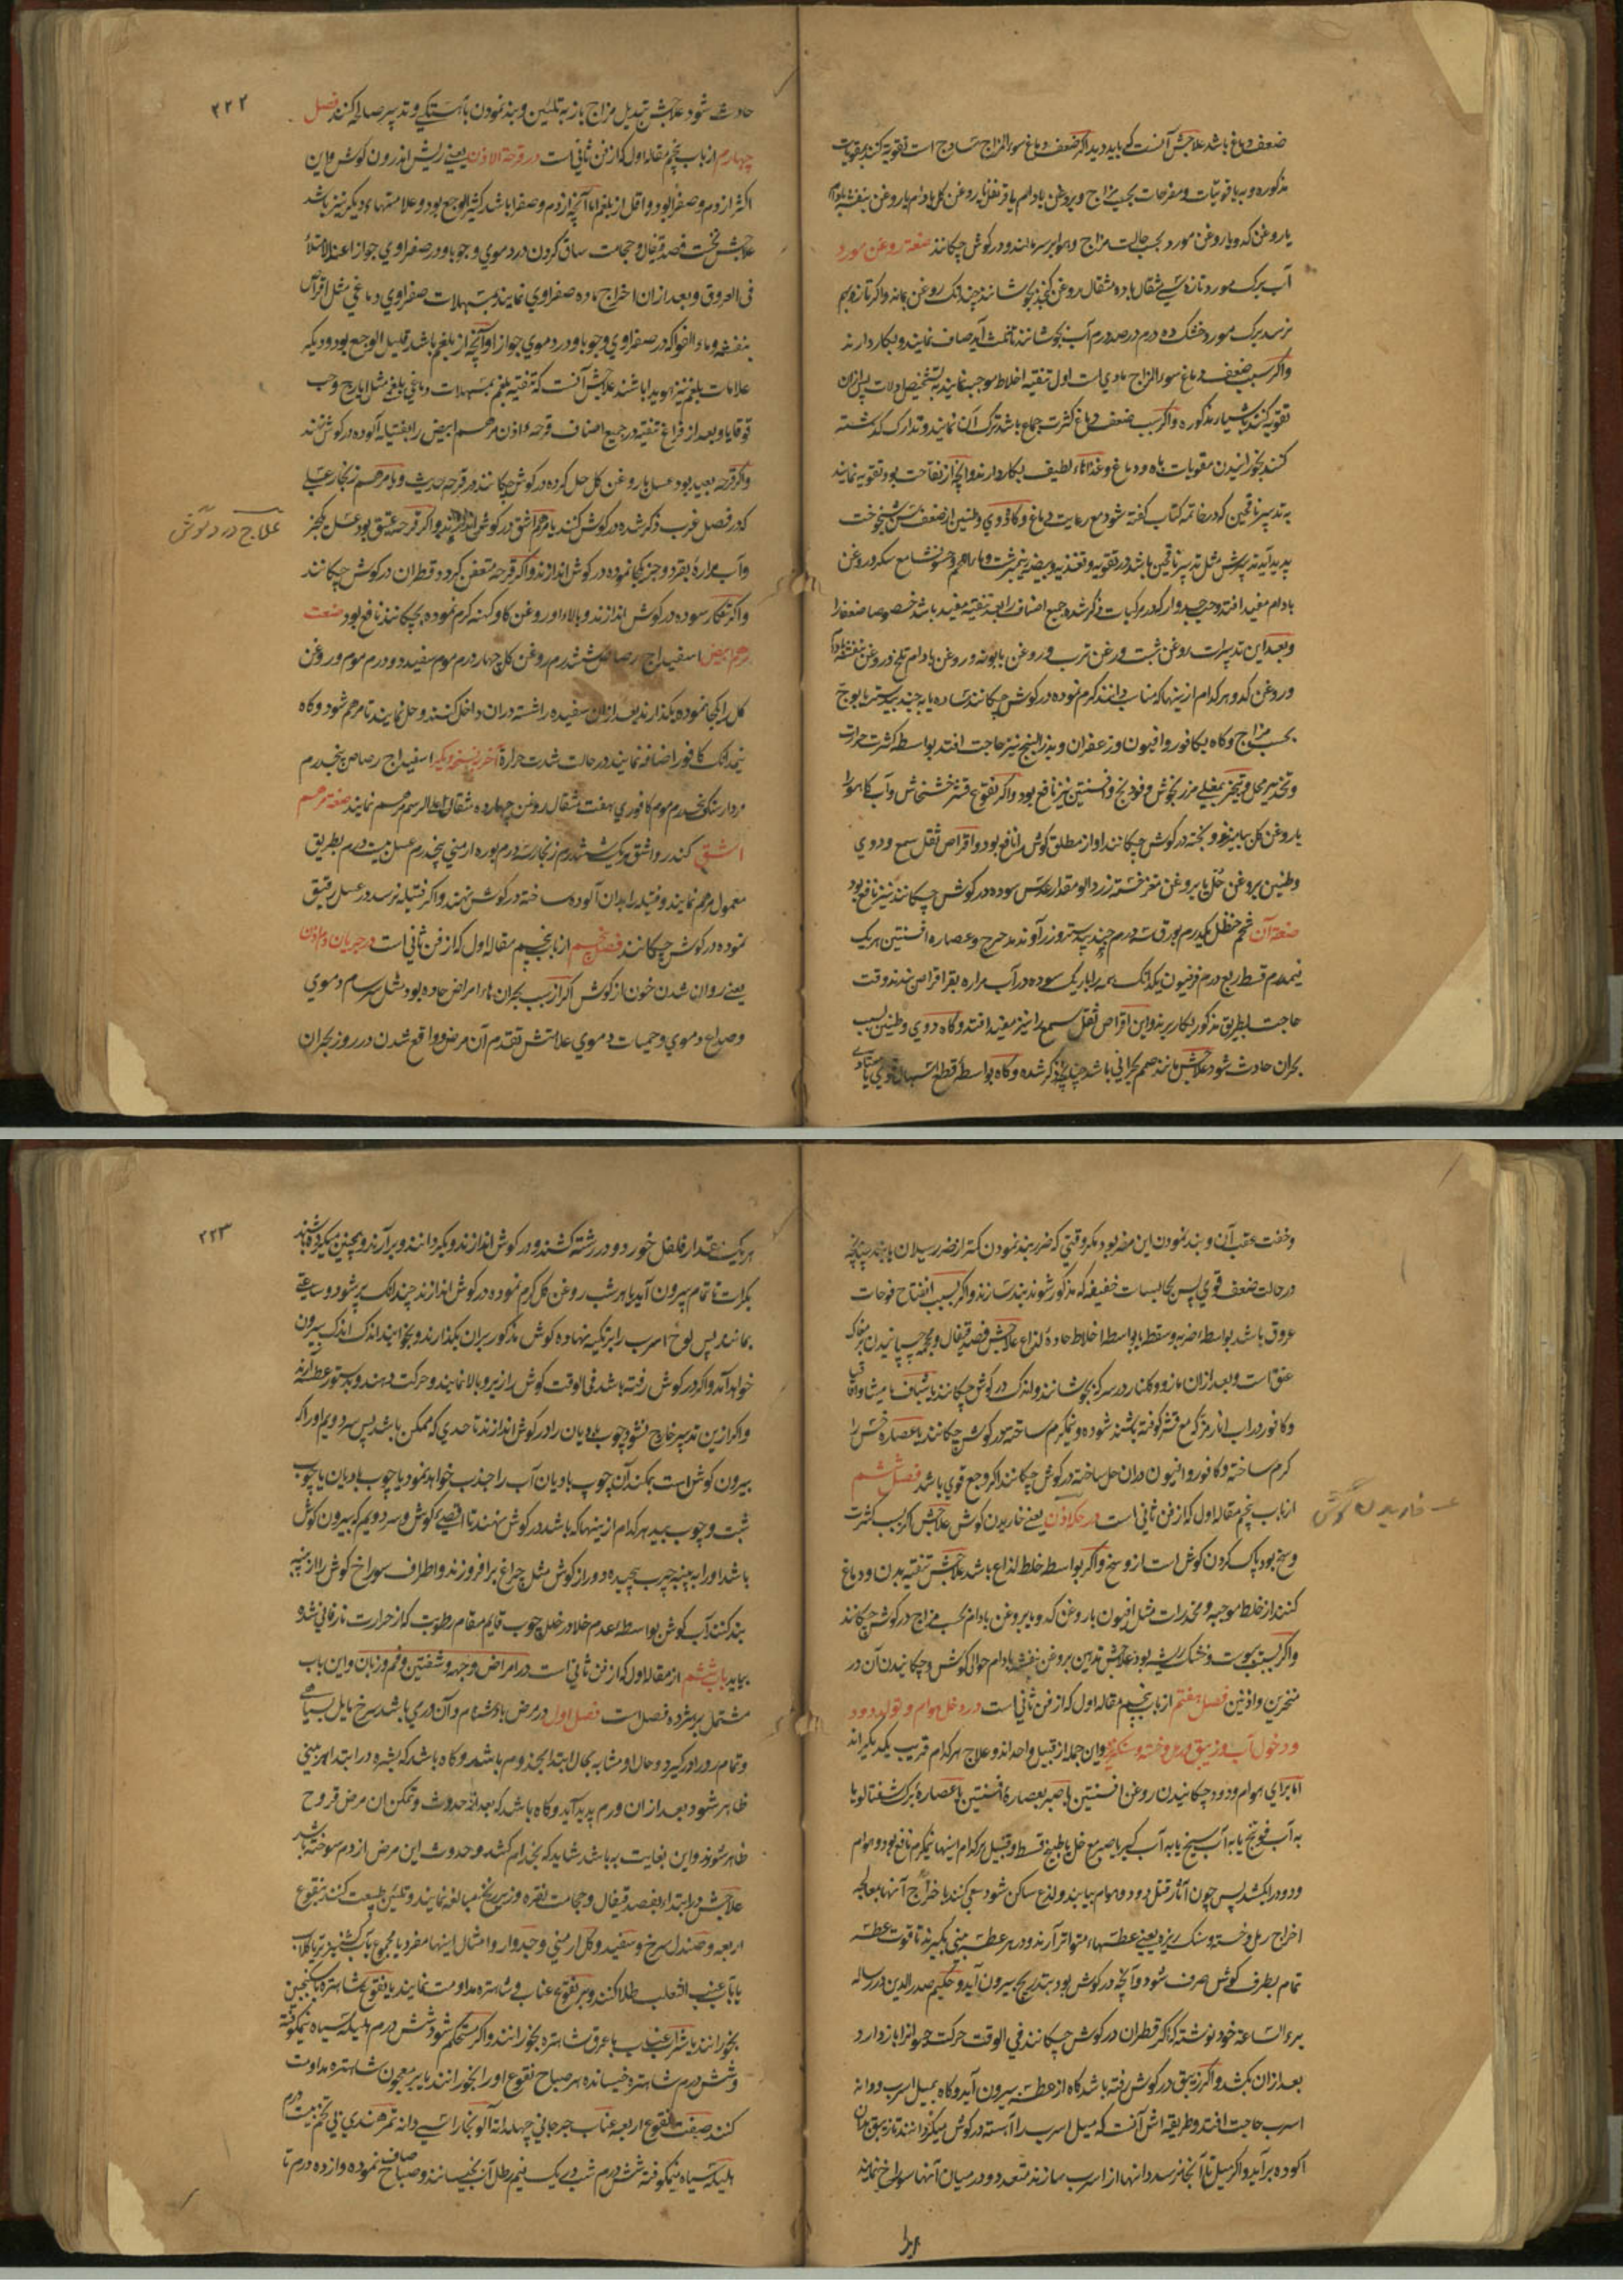 ضعف دماغ باشد علاجش آنست که باید دید اگر ضعف دماغ سوء المزاج ساذج است تقویه کنند بمقویات
مذکوره و به یاقوتیات و مفرحات بحسب مزاج و بروغن بادام یا قرنفل یا روغن گل بادام یا روغن بنفشه بادام
یا روغن کدو یا روغن مورد بحسب حالت مزاج و هوا بر سر مالند و در گوش چکانند صفة روغن مورد
آب برگ مورد تازه سی مثقال با ده مثقال روغن کنجد بجوشانند چندانکه روغن بماند و اگر تازه بهم
نرسد برگ مورد خشک ده درم در صد درم آب بجوشانند تا ثلث آید صاف نمایند و بکار دارند
و اگر سبب ضعف دماغ سوء المزاج مادی است اول تنقیه اخلاط موجبه نمایند به تشخیص دلالات پس از آن
تقویه کنند باشیاء مذکوره و اگر سبب ضعف دماغ کثرت جماع باشد ترک آن نمایند و تدارک گذشته
کنند بخورانیدن مقویات باه و دماغ و غذاهاء لطیف بکار دارند و آنچه از نقاحت بود تقویه نمایند
به تدبیر ناقهین که در خاتمه کتاب گفته شود مع رعایت دماغ و گاه دوی و طنین از ضعف سن شیخوخت
پدید آید تدبیرش مثل تدبیر ناقهین باشد در تقویه و تغذیه و بیضه نیمبرشت و ماء اللحم و حسو نشا مع سکر و روغن
بادام مفید افتد و حب جدوار که در مرکبات ذکر شده و جمیع اصناف را بعد تنقیه مفید باشد خصوصا ضعفا را
و بعد این تدبیرات روغن شبت و روغن ترب و روغن بابونه و روغن بادام تلخ و روغن بنفشه بادام
و روغن کدو هر کدام از اینها که مناسب دانند گرم نموده در گوش چکانند ساده یا به جند بیدستر یا بوج
بحسب مزاج و گاه بکافور و افیون و زعفران و بذر البنج نیز حاجت افتد بواسطه کثرت حرارت
و تخدیر محل و تبخیر بمغلی مرزنجوش و فودنج و افسنتین نیز نافع بود و اگر نقوع قشر خشخاش و آب کاهو را
با روغن گل بیامیزند و پخته در گوش چکانند اوجاع مطلق گوش را نافع بود و اقراص ثقل سمع و دوی
و طنین بروغن گل یا بروغن مغز خسته زردآلو مقدار عدس سوده در گوش چکانند نیز نافع بود
صفة آن شحم حنظل یکدرم بورق سه درم جندبیدستر و زراوند مدحرج و عصاره افسنتین هریک
نیمدرم قسط ربع درم فرفیون یکدانگ همه را باریک سوده در آب مراره بقر اقراص بندند وقت
حاجت بطریق مذکور بکار برند و این اقراص ثقل سمع را نیز مفید افتد و گاه دوی و طنین بسبب
بحران حادث شود علاجش مانند صمم بحرانی باشد چنانچه ذکر شده و گاه بواسطه قطع اسهال دموی
۲۲۲
حادث شود علاجش تبدیل مزاج باز به تلیین و بند نمودن بآهستگی و تدبیر صالح کنند فصل
چهارم از باب پنجم مقاله اول که از فن ثانی است در قرحة الاذن یعنی ریش اندرون گوش و این
اکثر از دم و صفرا بود و اقل از بلغم اما آنچه از دم و صفرا باشد کثیر الوجع بود و علامتهاء دیگر نیز باشد
علاجش نخست فصد قیفال و حجامت ساق کردن در دموی وجوبا و در صفراوی جوازا عند الامتلاء
فی العروق و بعد از آن اخراج ماده صفراوی نمایند بمسهلات صفراوی دماغی مثل اقراص
بنفشه و ماء الفواکه در صفراوی وجوبا و در دموی جوازا و آنچه از بلغم باشد قلیل الوجع بود و دیگر
علامات بلغم نیز هویدا باشند علاجش آنست که تنقیه بلغم بمسهلات دماغی بلغم مثل ایارج و حب
قوقایا و بعد از فراغ تنقیه در جمیع اصناف قرحه اذن مرهم ابیض را بفتیله آلوده در گوش نهند
و اگر قرحه بعید بود عسل با روغن گل حل کرده در گوش چکانند در قرحه حدیث و یا مرهم زنجار عسلی
که در فصل غرب ذکر شده در گوش کنند یا مرهم اشق در گوش اندازند و اگر قرحه عتیق بود عسل کفجز
علاج درد گوش
و آب مراره بقر دو جزء یکجا نموده در گوش اندازند و اگر قرحه متعفن گردد قطران در گوش چکانند
و اگر تنکار سوده در گوش اندازند و بالاء او روغن گاو کهنه گرم نموده بچکانند نافع بود صنعت
مرهم ابیض اسفیداج رصاص شش درم روغن گل چهار درم موم سفید دو درم موم و روغن
گل را یکجا نموده بگذارند بعد از آن سفیده را شسته در آن داخل کنند و حل نمایند تا مرهم شود و گاه
نیمدانگ کافور اضافه نمایند در حالت شدت حرارة آخر بنسخه دیگر اسفیداج رصاص پنجدرم
مردارسنگ پنجدرم موم کافوری هفت مثقال روغن چهارده مثقال علی الرسم مرهم نمایند صفة مرهم
اشق کندر و اشق هریک شش درم زنجار سه درم بوره ارمنی پنجدرم عسل بیست درم بطریق
معمول مرهم نمایند و فتیله را بدان آلوده ساخته در گوش نهند و اگر فتیله نرسد در عسل رقیق
نموده در گوش چکانند فصل پنجم از باب پنجم مقاله اول که از فن ثانی است در جریان دم اذن
یعنی روان شدن خون از گوش اگر از سبب بحران هاء امراض حاده بود مثل سرسام دموی
و صداع دموی و حمیات دموی علامتش تقدم آن مرض و واقع شدن در روز بحران
و خفت عقب آن و بند نمودن این مضر بود مگر وقتی که ضرر بند نمودن کمتر از ضرر سیلان باشد چنانچه
در حالت ضعف قوی پس بحابسات خفیفه که مذکور شوند بند سازند و اگر بسبب انفتاح فوهات
عروق باشد بواسطه ضربه و سقطه یا بواسطه اخلاط حاده لذاع علاجش فصد قیفال و محجمه چسپانیدن بر مغاک
عنق است و بعد از آن مازو و گلنار در سرکه بجوشانند و اندک در گوش چکانند یا شیاف مامیثا و اقاقیا
و کافور در آب انار مز که مع قشر کوفته باشند سوده و نیمگرم ساخته در گوش چکانند یا عصاره خس را
گرم ساخته و کافور و افیون در آن حل ساخته در گوش چکانند اگر وجع قوی باشد فصل ششم
از باب پنجم مقاله اول که از فن ثانی است در حکه اذن یعنی خاریدن گوش علاجش اگر بسبب کثرت
خاریدن گوش
وسخ بود پاک کردن گوش است از وسخ و اگر بواسطه خلط لذاع باشد علاجش تنقیه بدن و دماغ
کنند از خلط موجبه و مخدرات مثل افیون با روغن کدو یا بروغن بادام بحسب مزاج در گوش چکانند
و اگر بسبب یبوست و خشک ریشه بود علاجش تدهین بروغن بنفشه بادام حوالی گوش و چکانیدن آن در
منخرین و اذنین فصل هفتم از باب پنجم مقاله اول که از فن ثانی است در دخول هوام و تولد دود
و دخول آب و زیبق و رمل و خسته و سنگریزه و این جمله از قبیل واحدند و علاج هر کدام قریب یکدیگراند
اما برای هوام و دود چکانیدن روغن افسنتین یا صبر بعصاره افسنتین یا عصاره برگ شفتالو یا
به آب فودنج یا به آب سیخ یا به آب کبر یا صبر مع خل یا طبیخ قسط و قنبیل هر کدام اینها نیمگرم نافع بود و هوام
و دود را بکشد پس چون آثار قتل دود و هوام بیابند و لذع ساکن شود سعی کنند باخراج آنها بمعالجه
اخراج رمل و خسته و سنگ ریزه یعنی عطسهاء متواتر آرند و در هر عطسه بینی بگیرند تا قوت عطسه
تمام بطرف گوش صرف شود و آنچه در گوش بود بتدریج بیرون آید و حکیم صدرالدین در رساله
برء الساعة خود نوشته که اگر قطران در گوش چکانند فی الوقت حرکت حیوان را باز دارد
بعد از آن بکشد و اگر زیبق در گوش رفته باشد گاه از عطسه بیرون آید و گاه بمیل اسرب و دانه
اسرب حاجت افتد و طریقه اش آنست که میل اسرب را آهسته در گوش میگردانند تا زیبق بدان
آلوده برآید و اگر میل تا آنجا نرسد دانها از اسرب بسازند متعدد و در میان آنها سوراخ نمایند
۲۲۳
هریک مقدار فلفل خورد و در رشته کشند و در گوش اندازند و بگردانند و برآرند و همچنین میکرده باشند
بکرات تا تمام بیرون آید یا هر شب روغن گل گرم نموده در گوش اندازند چندانکه پر شود و ساعتی
بمانند پس لوح اسرب را بر تکیه نهاده گوش مذکور بران بگذارند و بخوابند اندک اندک بیرون
خواهد آمد و اگر در گوش رفته باشد فی الوقت گوش را زیر و بالا نمایند و حرکت دهند و بدستور عطسه آرند
و اگر ازین تدبیر خارج نشود چوب بادیان را در گوش اندازند تا حدی که ممکن باشد پس سر دویم او را که
بیرون گوش است بمکند آن چوب بادیان آب را جذب خواهد نمود یا چوب بادیان یا چوب
شبت و چوب بید هر کدام از اینها که باشد در گوش نهند تا اقصی گوش و سر دویم که بیرون گوش
باشد او را به پنبه چرب پیچیده دور از گوش مثل چراغ برافروزند و اطراف سوراخ گوش را از پنبه
بند کنند آب گوش بواسطه عدم خلا در خلل چوب قایم مقام رطوبت که از حرارت نار فانی شده
بیاید باب ششم از مقاله اول که از فن ثانی است در امراض وجه و شفتین و فم و زبان و این باب
مشتمل بر هژده فصل است فصل اول در مرض بادشنام و آن دری باشد سرخ مایل بسیاهی
و تمام رو را در گیرد و حال او مشابه بحال ابتداء مجذوم باشد و گاه باشد که بشره در ابتداء بینی
ظاهر شود بعد از آن ورم پدید آید و گاه باشد که بعد از حدوث و تمکن آن مرض قروح
ظاهر شوند و این بغایت بد باشد شاید که بجذام کشد و حدوث این مرض از دم سوخته باشد
علاجش در ابتدا بفصد قیفال و حجامت نقره و زیر زنخ مبالغه نمایند و تلیین طبیعت کنند بنقوع
اربعه و صندل سرخ و سفید و گل ارمنی و جدوار و امثال اینها مفرد یا مجموع بآب گشنیز تر یا گلاب
یا بآب عنب الثعلب طلا کنند و بر نقوع عناب و شاهتره مداومت نمایند یا نقوع شاهتره با سکنجبین
بخورانند یا شراب عناب با عرق شاهتره بخورانند و اگر مستحکم شود شش درم هلیله سیاه نیمکوفته
و شش درم شاهتره خیسانده هر صباح نقوع او را بخورانند یا بر معجون شاهتره مداومت
کنند صفت نقوع اربعه عناب جرجانی چهل دانه آلو بخارا سی دانه تمر هندی بی تخم بیست درم
هلیله سیاه نیمکوفته شش درم شب در یک نیم رطل آب بخیسانند و صباح صاف نموده و از ده درم تا